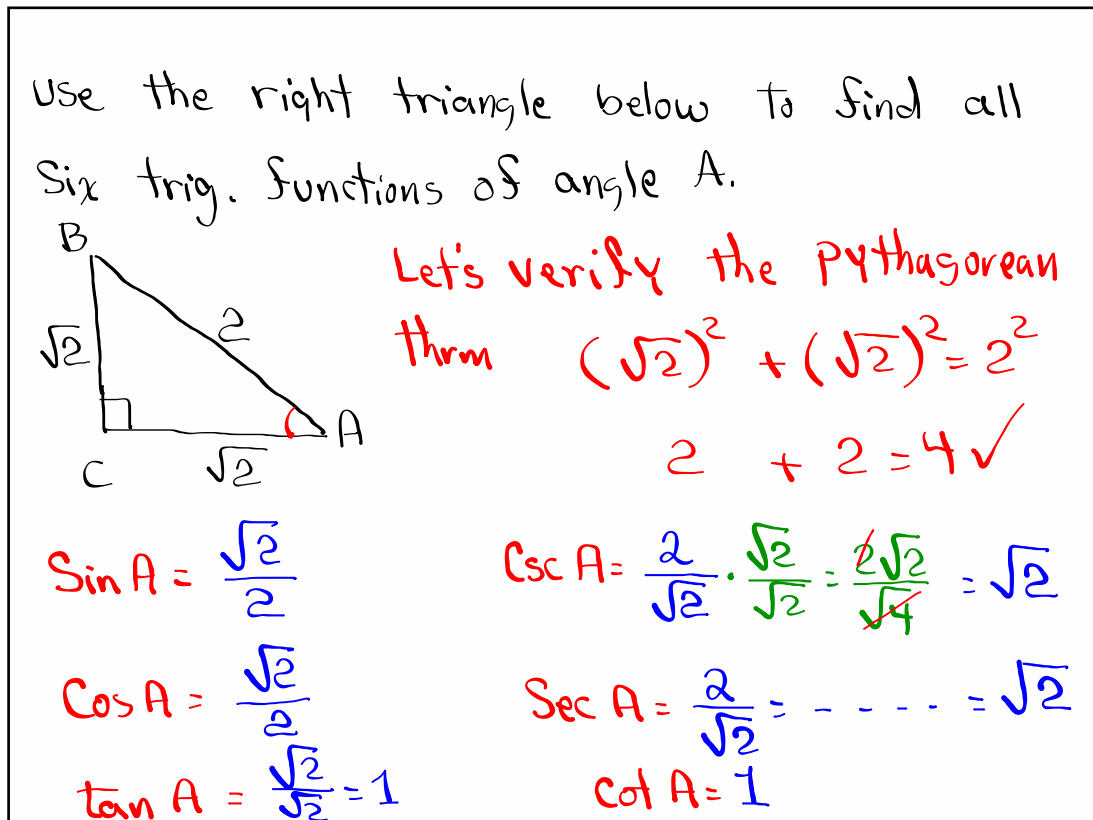 Use the right triangle below to find all
Six trig. functions of angle A.
B
√2
2
A
C
√2
Let's verify the Pythagorean
thrm (√2)² + (√2)² = 2²
2 + 2 = 4 ✓
Sin A = √2/2
Csc A = 2/√2 · √2/√2 = 2√2/√4 = √2
Cos A = √2/2
Sec A = 2/√2 = - - - - = √2
tan A = √2/√2 = 1
cot A = 1